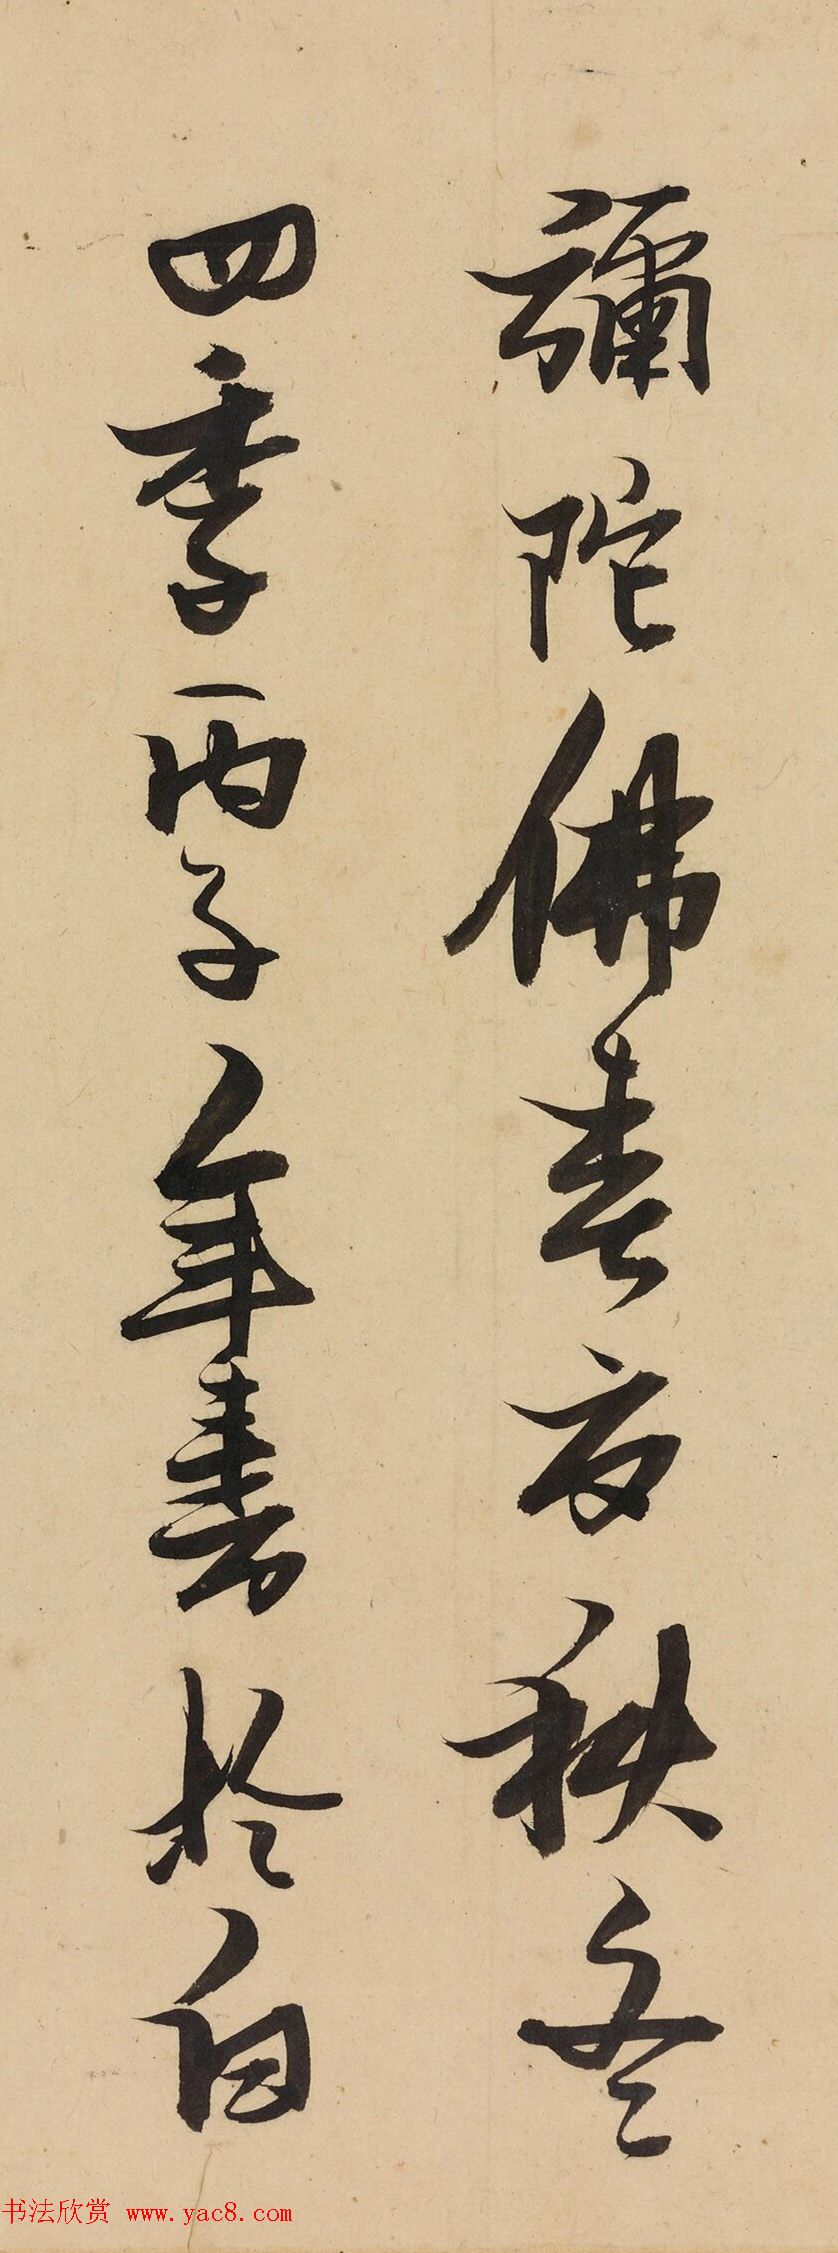 彌陀佛春夏秋冬
四季丙子年書於白
书法欣赏 www.yac8.com